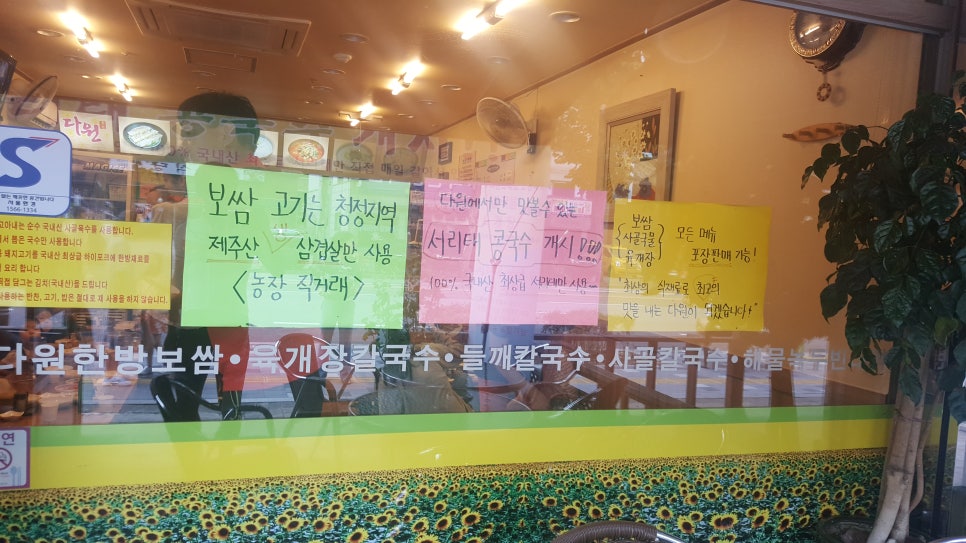 다원
국내산
S
1566-1334
고아내는 순수 국내산 사골육수를 사용합니다.
뽑은 국수만 사용합니다
돼지고기를 국내산 최상급 하이포크에 한방재료를
요리 합니다
담그는 김치(국내산)를 드립니다
사용하는 반찬, 고기, 밥은 절대로 재 사용을 하지 않습니다.
보쌈 고기는 청정지역
제주산 삼겹살만 사용
<농장 직거래>
다원에서만 맛볼수 있는
서리태 콩국수 개시
100% 국내산 최상급 서리태만 사용
보쌈
사골국물
육개장
모든 메뉴
포장판매 가능!
최상의 식재료로 최고의
맛을 내는 다원이 되겠습니다
다원한방보쌈•육개장칼국수•들깨칼국수•사골칼국수•해물
연